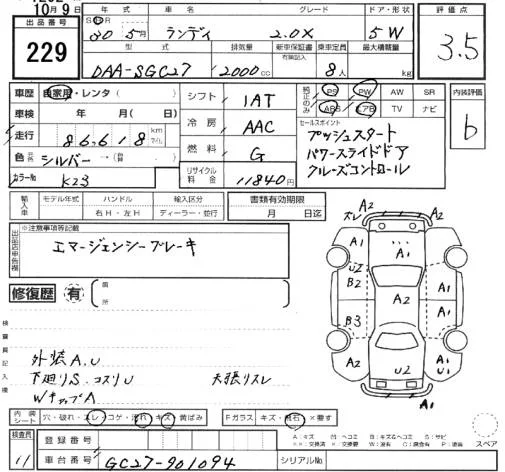 10月9日
出品番号
229
年式 車名 グレード ドア・形状
SHR 30 5月 ランディ 2.0X 5W
型式 排気量 新車保証書 乗車定員 最大積載量
有無記入
DAA-SGC27 2000cc 8人 kg
評価点
3.5
車歴 自家用・レンタ( )
車検 年 月( 日)
走行 86,618 km
色 シルバー→
カラーNo K23
シフト IAT
冷房 AAC
燃料 G
リサイクル料金 11840円
純正のみ PS PW AW SR
ABS エアB TV ナビ
セールスポイント
プッシュスタート
パワースライドドア
クルーズコントロール
内装評価
b
輸入車 モデル年式 ハンドル 輸入区分
右H・左H ディーラー・並行
書類有効期限
月 日迄
※注意事項等記載
出品店申告欄
エマージェンシーブレーキ
修復歴 有 箇所
検査員記入欄
外装A,U
下廻りS、コスリU 天張りスレ
WキップA
A2
スレ A2
A1 A1 A1
U2
B2 A2 A2
B3
A2 U2 A1 U1
A1 A1
内装シート 穴・破れ・スレ・コゲ・汚れ・キズ・黄ばみ
Fガラス キズ・飛石・×要す
A:キズ U:ヘコミ B:キズ&ヘコミ S:サビ
××:交換済 ×:要交換 W:波有 C:腐食有 P:塗装
スペア
検査員 11
登録番号
車台番号 GC27-901094
シリアルNo